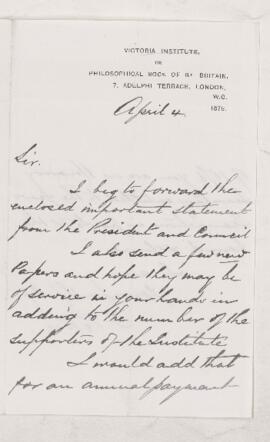 VICTORIA INSTITUTE,
OR
PHILOSOPHICAL SOCY. OF GT. BRITAIN,
7, ADELPHI TERRACE, LONDON,
W.C.
1879.
April 4.
Sir.
I beg to forward the
enclosed important statement
from the President and Council
I also send a few new
Papers and hope they may be
of service in your hands in
adding to the number of the
supporters of the Institute
I would add that
for an annual payment